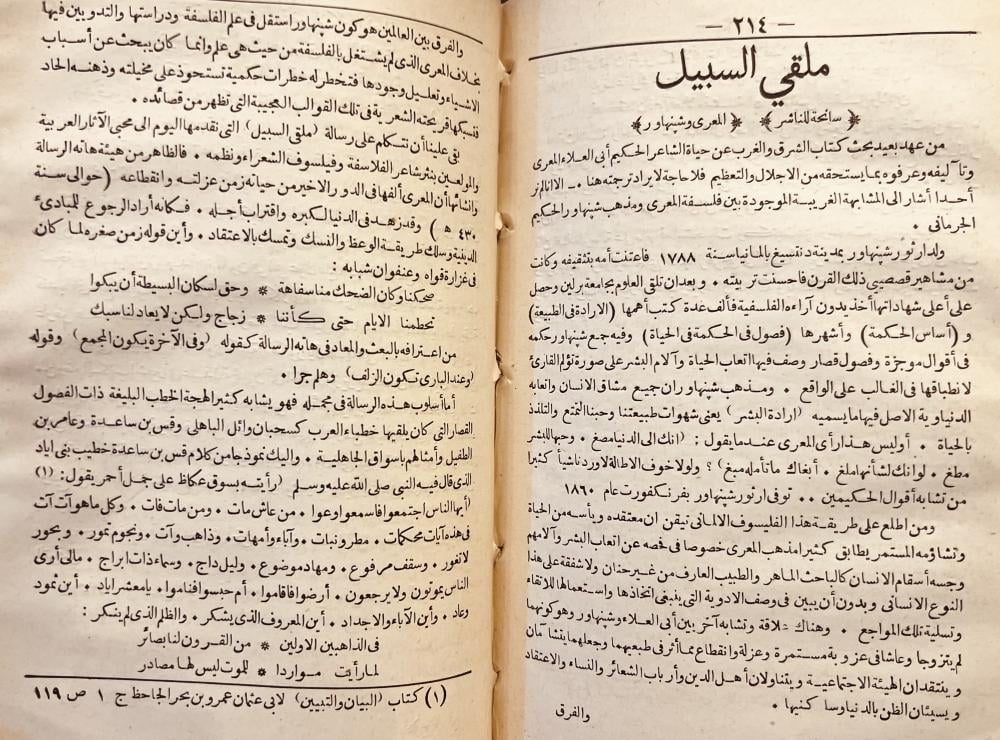 — ٢١٤ —
ملقي السبيل
﴿ سانحة للناشر ﴾ ﴿ المعرى وشپنهاور ﴾
من عهد بعيد بحث كتاب الشرق والغرب عن حياة الشاعر الحكيم أبى العلاء المعرى
وتآليفه وعرفوه بما يستحقه من الاجلال والتعظيم فلا حاجة لايراد ترجمته هنا . ـ الا انا لم نر
أحدا أشار الى المشابهة الغريبة الموجودة بين فلسفة المعرى ومذهب شپنهاور الحكيم
الجرمانى .
ولد ارثور شپنهاور بمدينة دنتسيغ بالمانيا سنة ١٧٨٨ فاعتنت أمه بتثقيفه وكانت
من مشاهير قصصيي ذلك القرن فاحسنت تربيته . وبعد ان تلقى العلوم بجامعة برلين وحصل
على أعلى شهاداتها أخذ يدون آراءه الفلسفية فألف عدة كتب أهمها (الارادة فى الطبيعة)
و (أساس الحكمة) وأشهرها (فصول فى الحكمة فى الحياة) وفيه جمع شپنهاور حكمه
فى أقوال موجزة وفصول قصار وصف فيها اتعاب الحياة وآلام البشر على صورة تؤلم القارئ
لانطباقها فى الغالب على الواقع . ومذهب شپنهاور ان جميع مشاق الانسان واتعابه
الدنياوية الاصل فيها ما يسميه (ارادة البشر) يعنى شهوات طبيعتنا وحبنا التمتع والتلذذ
بالحياة . أوليس هذا رأى المعرى عندما يقول : (انك الى الدنيا مصغ . وحبها للبشر
مطغ . لو انك لشأنها ملغ . أبغاك ما تأمله مبغ) ؟ ولولا خوف الاطالة لاوردنا شيأ كثيرا
من تشابه أقوال الحكيمين . . توفى ارثور شپنهاور بفرنكفورت عام ١٨٦٠
ومن اطلع على طريقة هذا الفيلسوف الالمانى تيقن ان معتقده ويأسه من الحياة
وتشاؤمه المستمر يطابق كثيرا مذهب المعرى خصوصا فى فحصه عن اتعاب البشر وآلامهم
وجسه أسقام الانسان كالباحث الماهر والطبيب العارف من غير حنان ولا شفقة على هذا
النوع الانسانى وبدون أن يبين فى وصف الادوية التى ينبغى اتخاذها واستعمالها للاتقاء
وتسلية تلك المواجع . وهناك علاقة وتشابه آخر بين أبى العلاء وشپنهاور وهو كونهما
لم يتزوجا وعاشا فى عزوبة مستمرة وعزلة وانقطاع مما أثر فى طبعيهما وجعلهما يتشآمان
وينتقدان الهيئة الاجتماعية ويتناولان أهل الدين وأرباب الشعائر والنساء والاعتقاد
ويسيئان الظن بالدنيا وساكنيها .
والفرق
والفرق بين العالمين هو كون شپنهاور استقل فى علم الفلسفة ودراستها والتدوين فيها
بخلاف المعرى الذى لم يشتغل بالفلسفة من حيث هى علم وانما كان يبحث عن أسباب
الاشياء وتعليل وجودها فتخطر له خطرات حكمية تستحوذ على مخيلته وذهنه الحاد
فتسبكها قريحته الشعرية فى تلك القوالب العجيبة التى تظهر من قصائده .
بقى علينا أن نتكلم على رسالة (ملقى السبيل) التى نقدمها اليوم الى محبى الآثار العربية
والمولعين بنثر شاعر الفلاسفة وفيلسوف الشعراء ونظمه . فالظاهر من هيئة هاته الرسالة
وانشائها أن المعرى ألفها فى الدور الاخير من حياته زمن عزلته وانقطاعه (حوالى سنة
٤٣٠ ه) وقد زهد فى الدنيا لكبره واقتراب أجله . فكأنه أراد الرجوع للمبادئ
الدينية وسلك طريقة الوعظ والنسك وتمسك بالاعتقاد . وأين قوله زمن صغره لما كان
فى غزارة قواه وعنفوان شبابه :
ضحكنا وكان الضحك منا سفاهة * وحق لسكان البسيطة أن يبكوا
تحطمنا الايام حتى كأننا * زجاج ولكن لا يعاد لنا سبك
من اعترافه بالبعث والمعاد فى هاته الرسالة كقوله (وفى الآخرة يكون المجمع) وقوله
(وعند البارى تكون الزلف) وهلم جرا .
أما أسلوب هذه الرسالة فى مجمله فهو يشابه كثيرا لهجة الخطب البليغة ذات الفصول
القصار التى كان يلقيها خطباء العرب كسحبان وائل الباهلى وقس بن ساعدة وعامر بن
الطفيل وأمثالهم بأسواق الجاهلية . واليك نموذجا من كلام قس بن ساعدة خطيب بنى اياد
الذى قال فيه النبى صلى الله عليه وسلم (رأيته بسوق عكاظ على جمل أحمر يقول : (١)
(أيها الناس اجتمعوا فاسمعوا وعوا . من عاش مات . ومن مات فات . وكل ما هو آت آت
فى هذه آيات محكمات . مطر ونبات . وآباء وأمهات . وذاهب وآت . ونجوم تمور . وبحور
لا تغور . وسقف مرفوع . ومهاد موضوع . وليل داج . وسماء ذات ابراج . مالى أرى
الناس يموتون ولا يرجعون . أرضوا فاقاموا . أم حبسوا فناموا . يا معشر اياد . أين ثمود
وعاد . وأين الآباء والاجداد . أين المعروف الذى يشكر . والظلم الذى لم ينكر :
فى الذاهبين الاولين * من القرون لنا بصائر
لما رأيت مواردا * للموت ليس لها مصادر
(١) كتاب (البيان والتبيين) لابى عثمان عمرو بن بحر الجاحظ ج ١ ص ١١٩